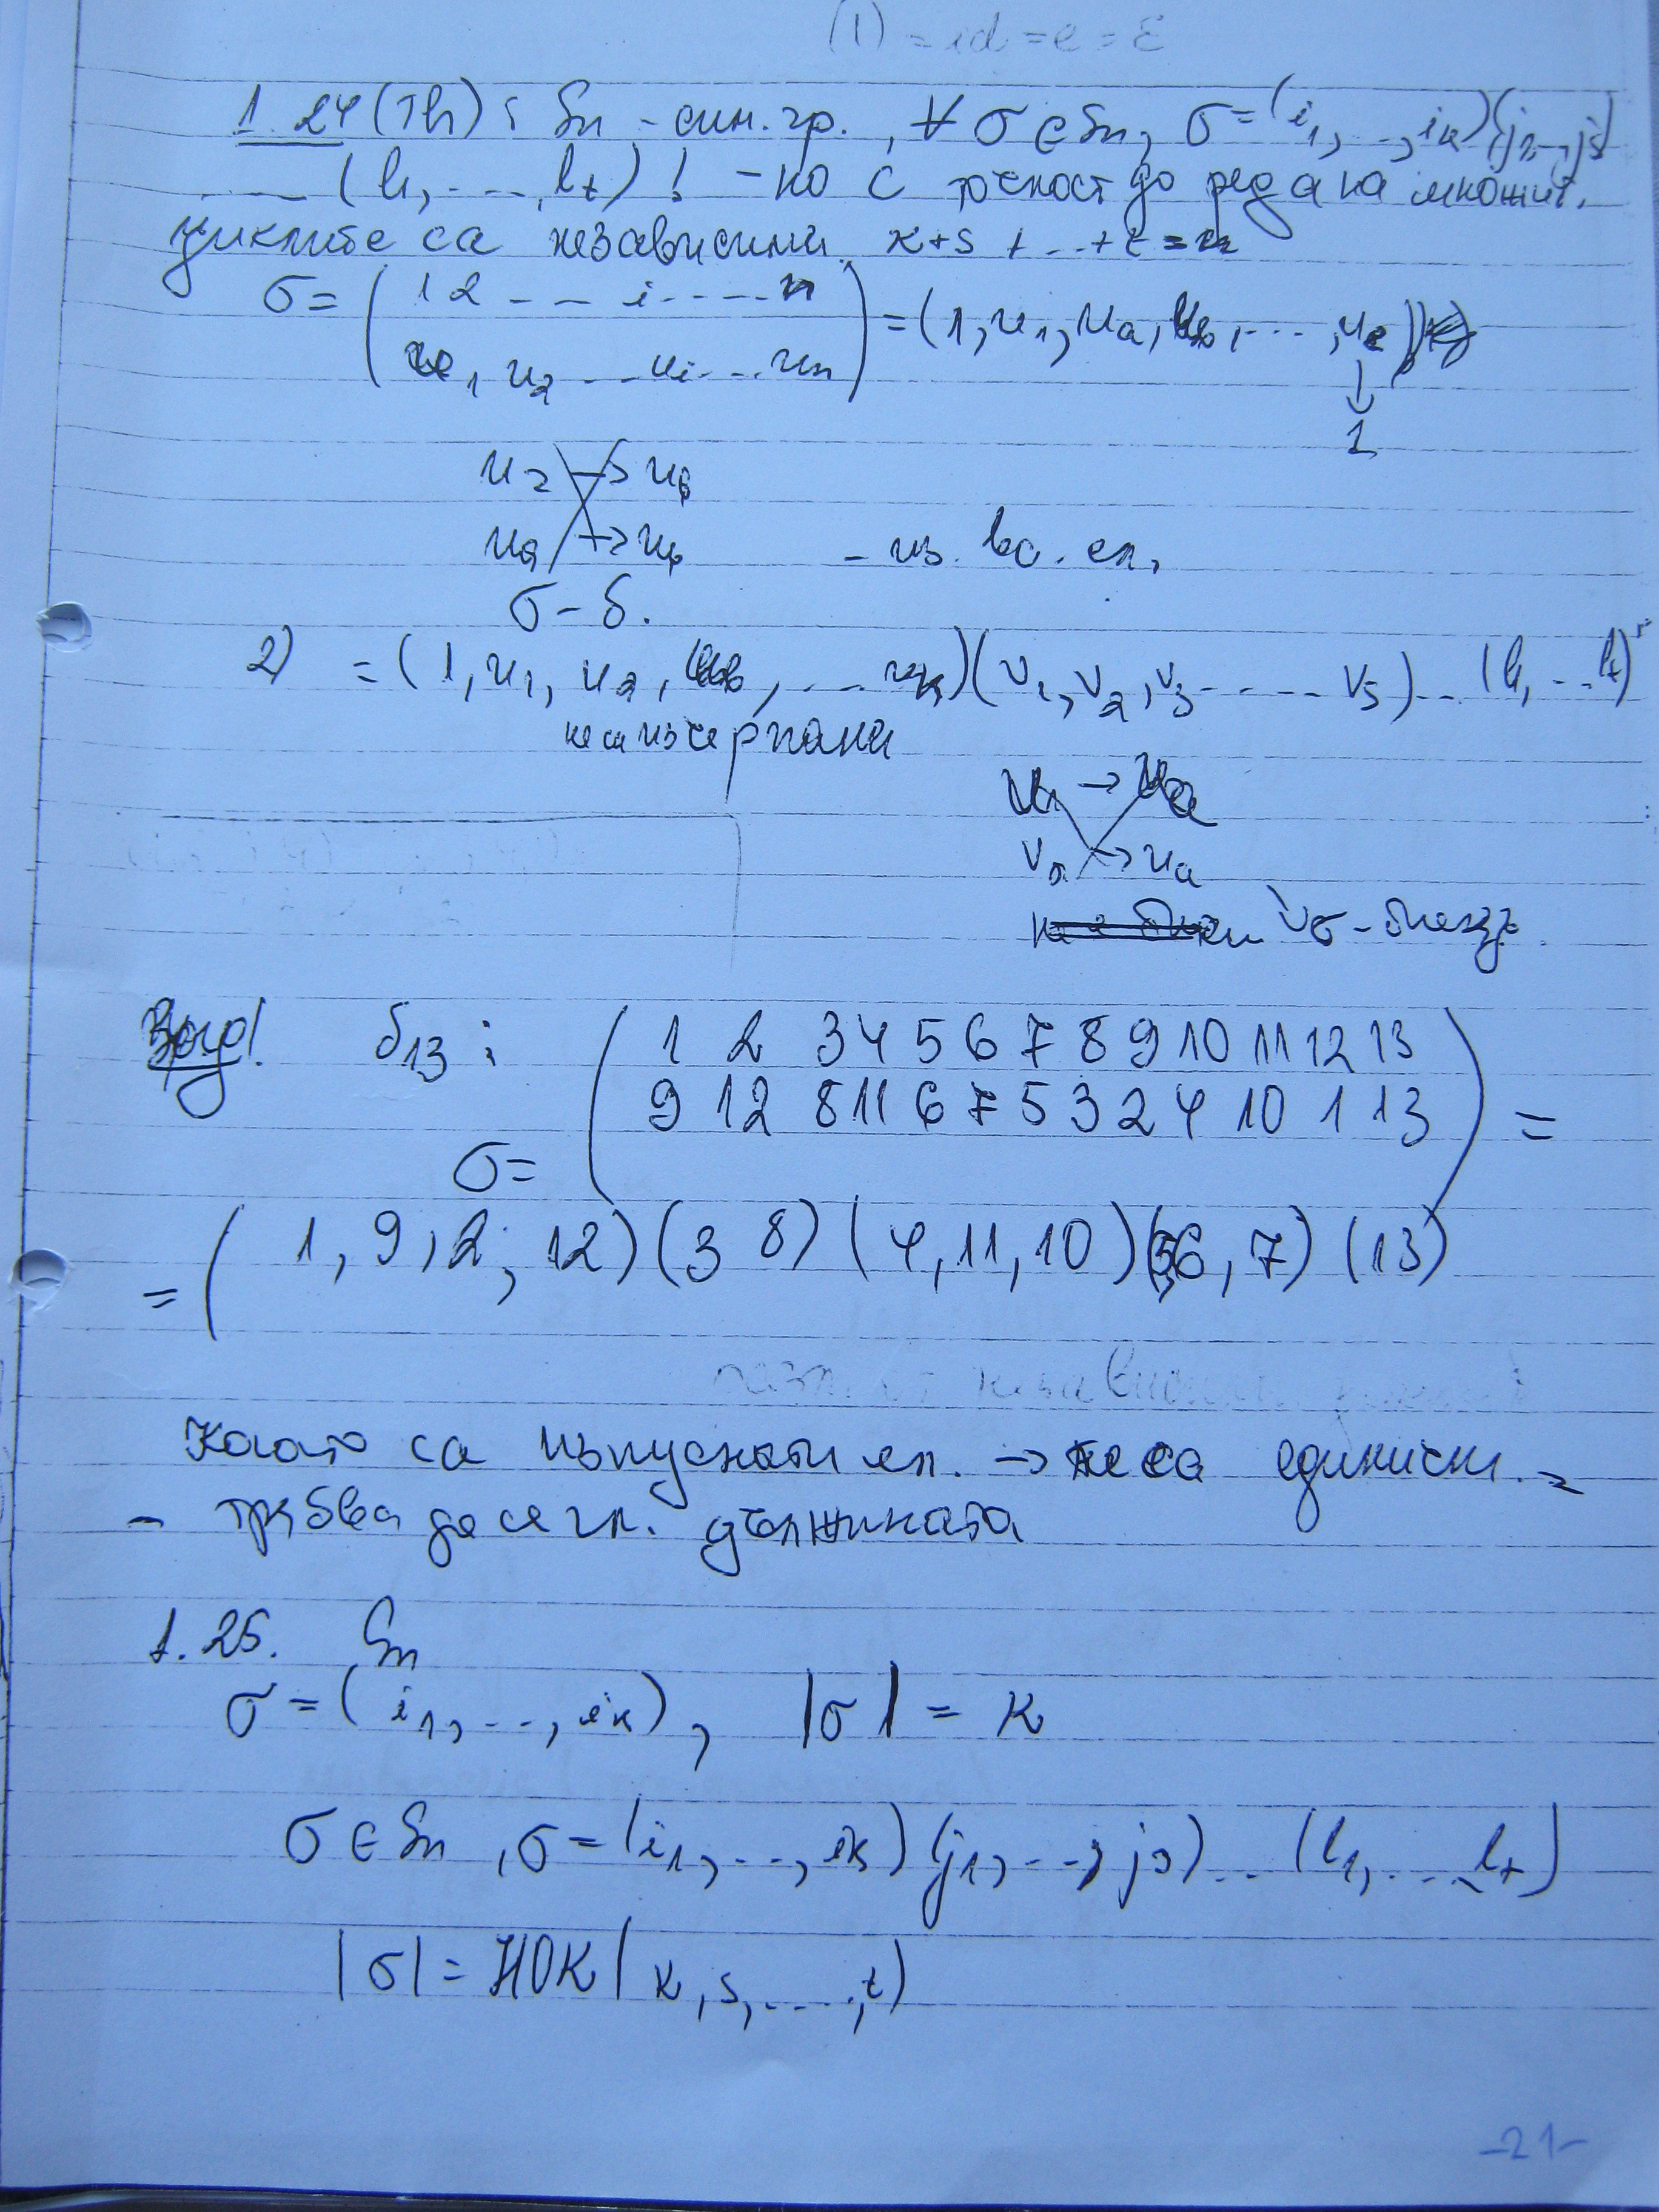 (1) = id = e = ε
1.24 (Th): Sn - сим. гр., ∀ σ ∈ Sn, σ = (i1, ..., ik)(j1, ..., js)
... (l1, ..., lt) ! - но с точност до реда на множит.
циклите са независими. k+s+...+t = n
σ = ( 1 2 - - i - - - - n
u1, u2 ... ui ... un ) = (1, u1, ua, ub, ..., ue)
↓
1
u2 → ub
ua → ub - из. вс. ел.
σ - б.
2) = (1, u1, u2, ub, ... uk)(v1, v2, v3 ..... vs) .. (l1, .. lt)
не са изчерпани
→ ua
→ ua
σ - биекц.
Зад! S13:
( 1 2 3 4 5 6 7 8 9 10 11 12 13
σ = 9 12 8 11 6 7 5 3 2 4 10 1 13 ) =
= (1, 9, 2, 12) (3 8) (4, 11, 10) (5, 6, 7) (13)
разл. на независими
Когато са изпуснати ел. → те са единичн. =
- трябва да се гл. дължината
1.25. Sn
σ = (i1, ..., ik), |σ| = k
σ ∈ Sn, σ = (i1, ..., ik)(j1, ..., js) .. (l1, .... lt)
|σ| = НОК(k, s, ...., t)
-21-